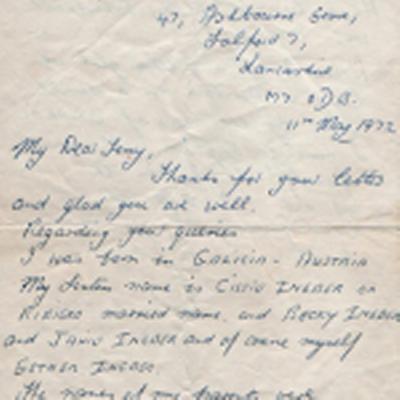 47, Ashbourne Grove,
Salford 7,
Lancashire
M7. 0DB.
11th May 1972
My Dear Terry,
Thanks for your letter
and glad you are well.
Regarding your queries
I was born in GALICIA - AUSTRIA
My Sisters name is CISSIE INGBER or
married name. and BECKY INGBER
and JANIE INGBER and of course myself
ESTHER INGBER.
The names of my parents were